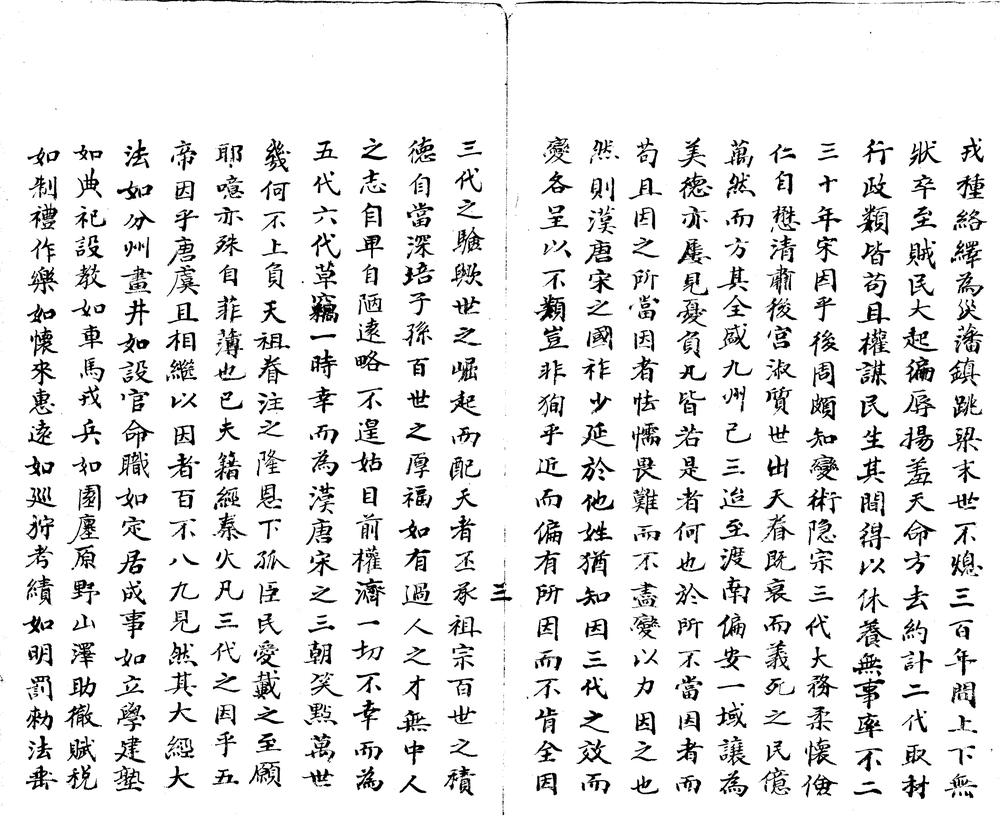 戎種絡繹為災藩鎮跳梁末世不熄三百年間上下無
狀卒至賊民大起徧辱揚羞天命方去約計二代取材
行政類皆苟且權謀民生其間得以休養無事率不二
三十年宋因乎後周頗知變術隐宗三代大務柔懷儉
仁自懋清肅後宮淑質世出天眷既衰而義死之民億
萬然而方其全盛九州已三迨至渡南偏安一域讓為
美德亦屢見憂負凡皆若是者何也於所不當因者而
苟且因之所當因者怯懦畏難而不盡變以力因之也
然則漢唐宋之國祚少延於他姓猶知因三代之效而
變各呈以不類豈非狥乎近而偏有所因而不肯全因
三
三代之驗歟世之崛起而配天者丕承祖宗百世之積
德自當深培子孫百世之厚福如有過人之才無中人
之志自畀自陋遠略不遑姑目前權濟一切不幸而為
五代六代草竊一時幸而為漢唐宋之三朝笑點萬世
幾何不上負天祖眷注之隆恩下孤臣民愛戴之至願
耶噫亦殊自菲薄也已夫籍經秦火凡三代之因乎五
帝因乎唐虞且相繼以因者百不八九見然其大經大
法如分州畫井如設官命職如定居成事如立學建塾
如典祀設教如車馬戎兵如園廛原野山澤助徹賦税
如制禮作樂如懷來惠遠如廵狩考績如明罰勅法垂